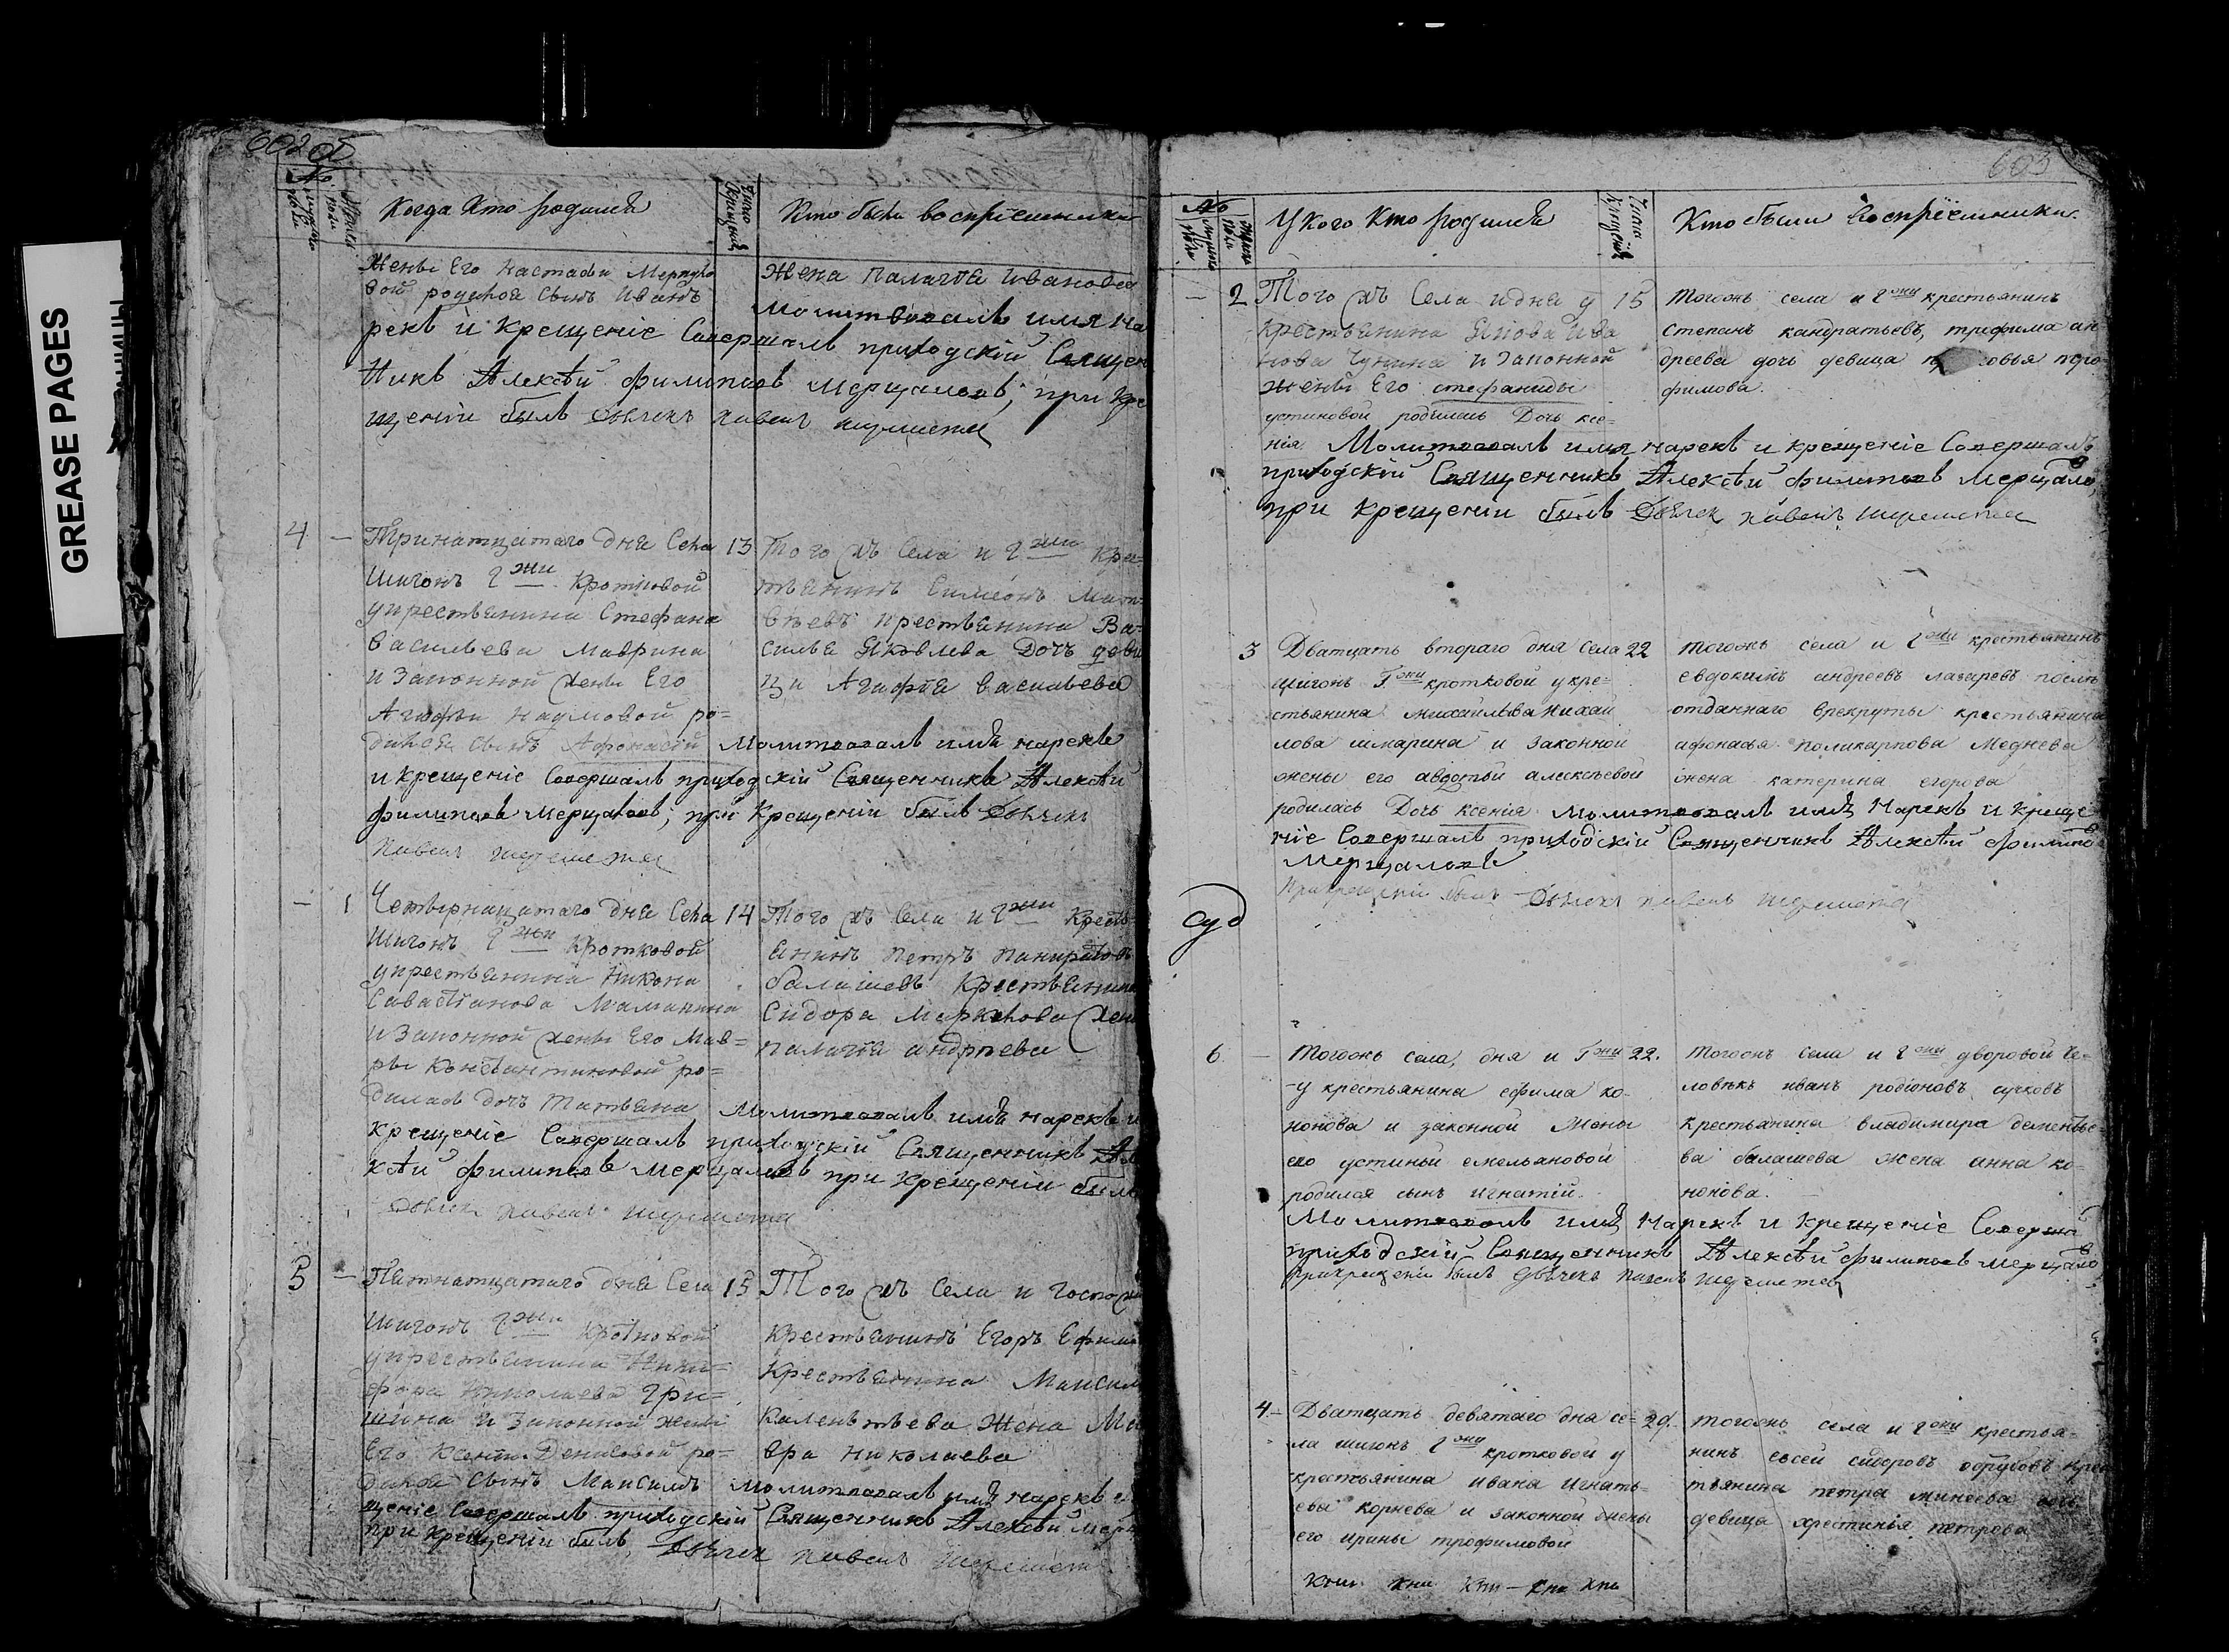 GREASE PAGES
602 об
№
Когда Кто родился
Число Крещенія
Кто были воспріемники
Жены Его Настасьи
родился Сынъ Иванъ
рекъ и крещеніе Совершалъ приходскій Священ
никъ Алексѣй Филиповъ Мерцаловъ, при кре
щеніи былъ Дьячек Павелъ Шереметев
Жена Палагѣя Иванова
Молитвовалъ имя на
4 —
Тринатцатаго дня Села
Шигонъ Гжи Кротковой
укрестьянина Стефана
Васильева Маврина
и Законной жены Его
Агафьи Наумовой ро=
дился Сынъ Афонасей
13
Того жъ Села и Гжи Кре=
стьянинъ Симеонъ Мат
вѣевъ крестьянина Ва=
силья Яковлева Дочь деви
ца Агафья Васильева
Молитвовалъ имя нарекъ
и крещеніе Совершалъ приходскій Священникъ Алексѣй
Филиповъ Мерцаловъ, при Крещеніи былъ Дьячек
Павелъ Шереметев
— 1
Четвернацатаго дня Села
Шигонъ Гжи Кротковой
укрестьянина Никона
Савастьянова Маманина
и Законной жены Его Мав=
ры Константиновой ро=
дилась дочь Татьяна
14
Того жъ Села и Гжи Кресть
янинъ Петръ Панкратовъ
балашевъ Крестьянина
Сидора Маркелова жена
палагѣя андрѣева
Молитвовалъ имя нарекъ и
крещеніе Совершалъ приходскій Священникъ Але
ксѣй Филиповъ Мерцаловъ при крещеніи былъ
Дьячек Павелъ Шереметев
5 —
Пятнатцатаго дня Села
Шигонъ Гжи Кротковой
укрестьянина Ники=
фора Николаева Гри=
шина и Законной жены
Его Ксеніи Денисовой ро=
дился Сынъ Максимъ
15
Того жъ Села и Госпожи
Крестьянинъ Егоръ Ефимо
Крестьянина Максима
Каленьтьева Жена Ма
вра Николаева
молитвовалъ имя нарекъ и
щеніе Совершалъ приходскій Священникъ Алексѣй Мерц
при крещеніи былъ Дьячек Павелъ Шеремет
603
№
У Кого Кто родился
Число Крещенія
Кто были Воспріемники.
— 2
Того жъ Села и дня у
Крестьянина Якова Ива
нова Чунина и Законной
жены Его стефаниды
устиновой родилась Дочь ксе=
нія
15
Тогожъ села и Гжи крестьянинъ
степанъ кандратьевъ, трифима ан
дреева дочь девица
фимова.
Молитвовалъ имя нарекъ и крещеніе Совершалъ
приходскій Священникъ Алексѣй Филиповъ Мерцалов
при крещеніи былъ Дьячек Павелъ Шереметев
3
Дватцать втораго дня Села
шигонъ Гжи кротковой у кре=
стьянина михайлы михай
лова шмарина и законной
жены его авдотьи алексѣевой
родилась Дочь ксенія
22
Тогожъ села и Гжи крестьянинъ
евдокимъ андреевъ лазаревъ послѣ
отданнаго врекруты крестьянина
афонасья поликарпова Меднева
жена катерина егорова
молитвовалъ имя Нарекъ и креще
ніе Совершалъ приходскій Священникъ Алексѣй Филипо
Мерцаловъ
При крещеніи былъ Дьячек Павелъ Шереметев
6 —
Тогожъ села, дня и Гжи
-у крестьянина ефима ко-
нонова и законной жены
его устиньи емельяновой
родился сынъ игнатій.
22.
Тогожъ села и Гжи дворовой че-
ловѣкъ иванъ родіоновъ сучковъ
крестьянина владимира дементье=
ва балашева жена анна ко-
нонова.
Молитвовалъ имя Нарекъ и Крещеніе Соверша
приходскій Священникъ Алексѣй Филиповъ мерцалов
При крещеніи былъ Дьячекъ Павелъ Шереметев
4.-
Дватцать девятаго дня се=
ла шигонъ Гжи кротковой у
крестьянина ивана игнать=
ева корнева и законной жены
его ирины трофимовой
29.
Тогожъ села и Гжи крестья-
нинъ евсей сидоровъ кре
тьянина петра минеева дочь
девица хрестинія петрова